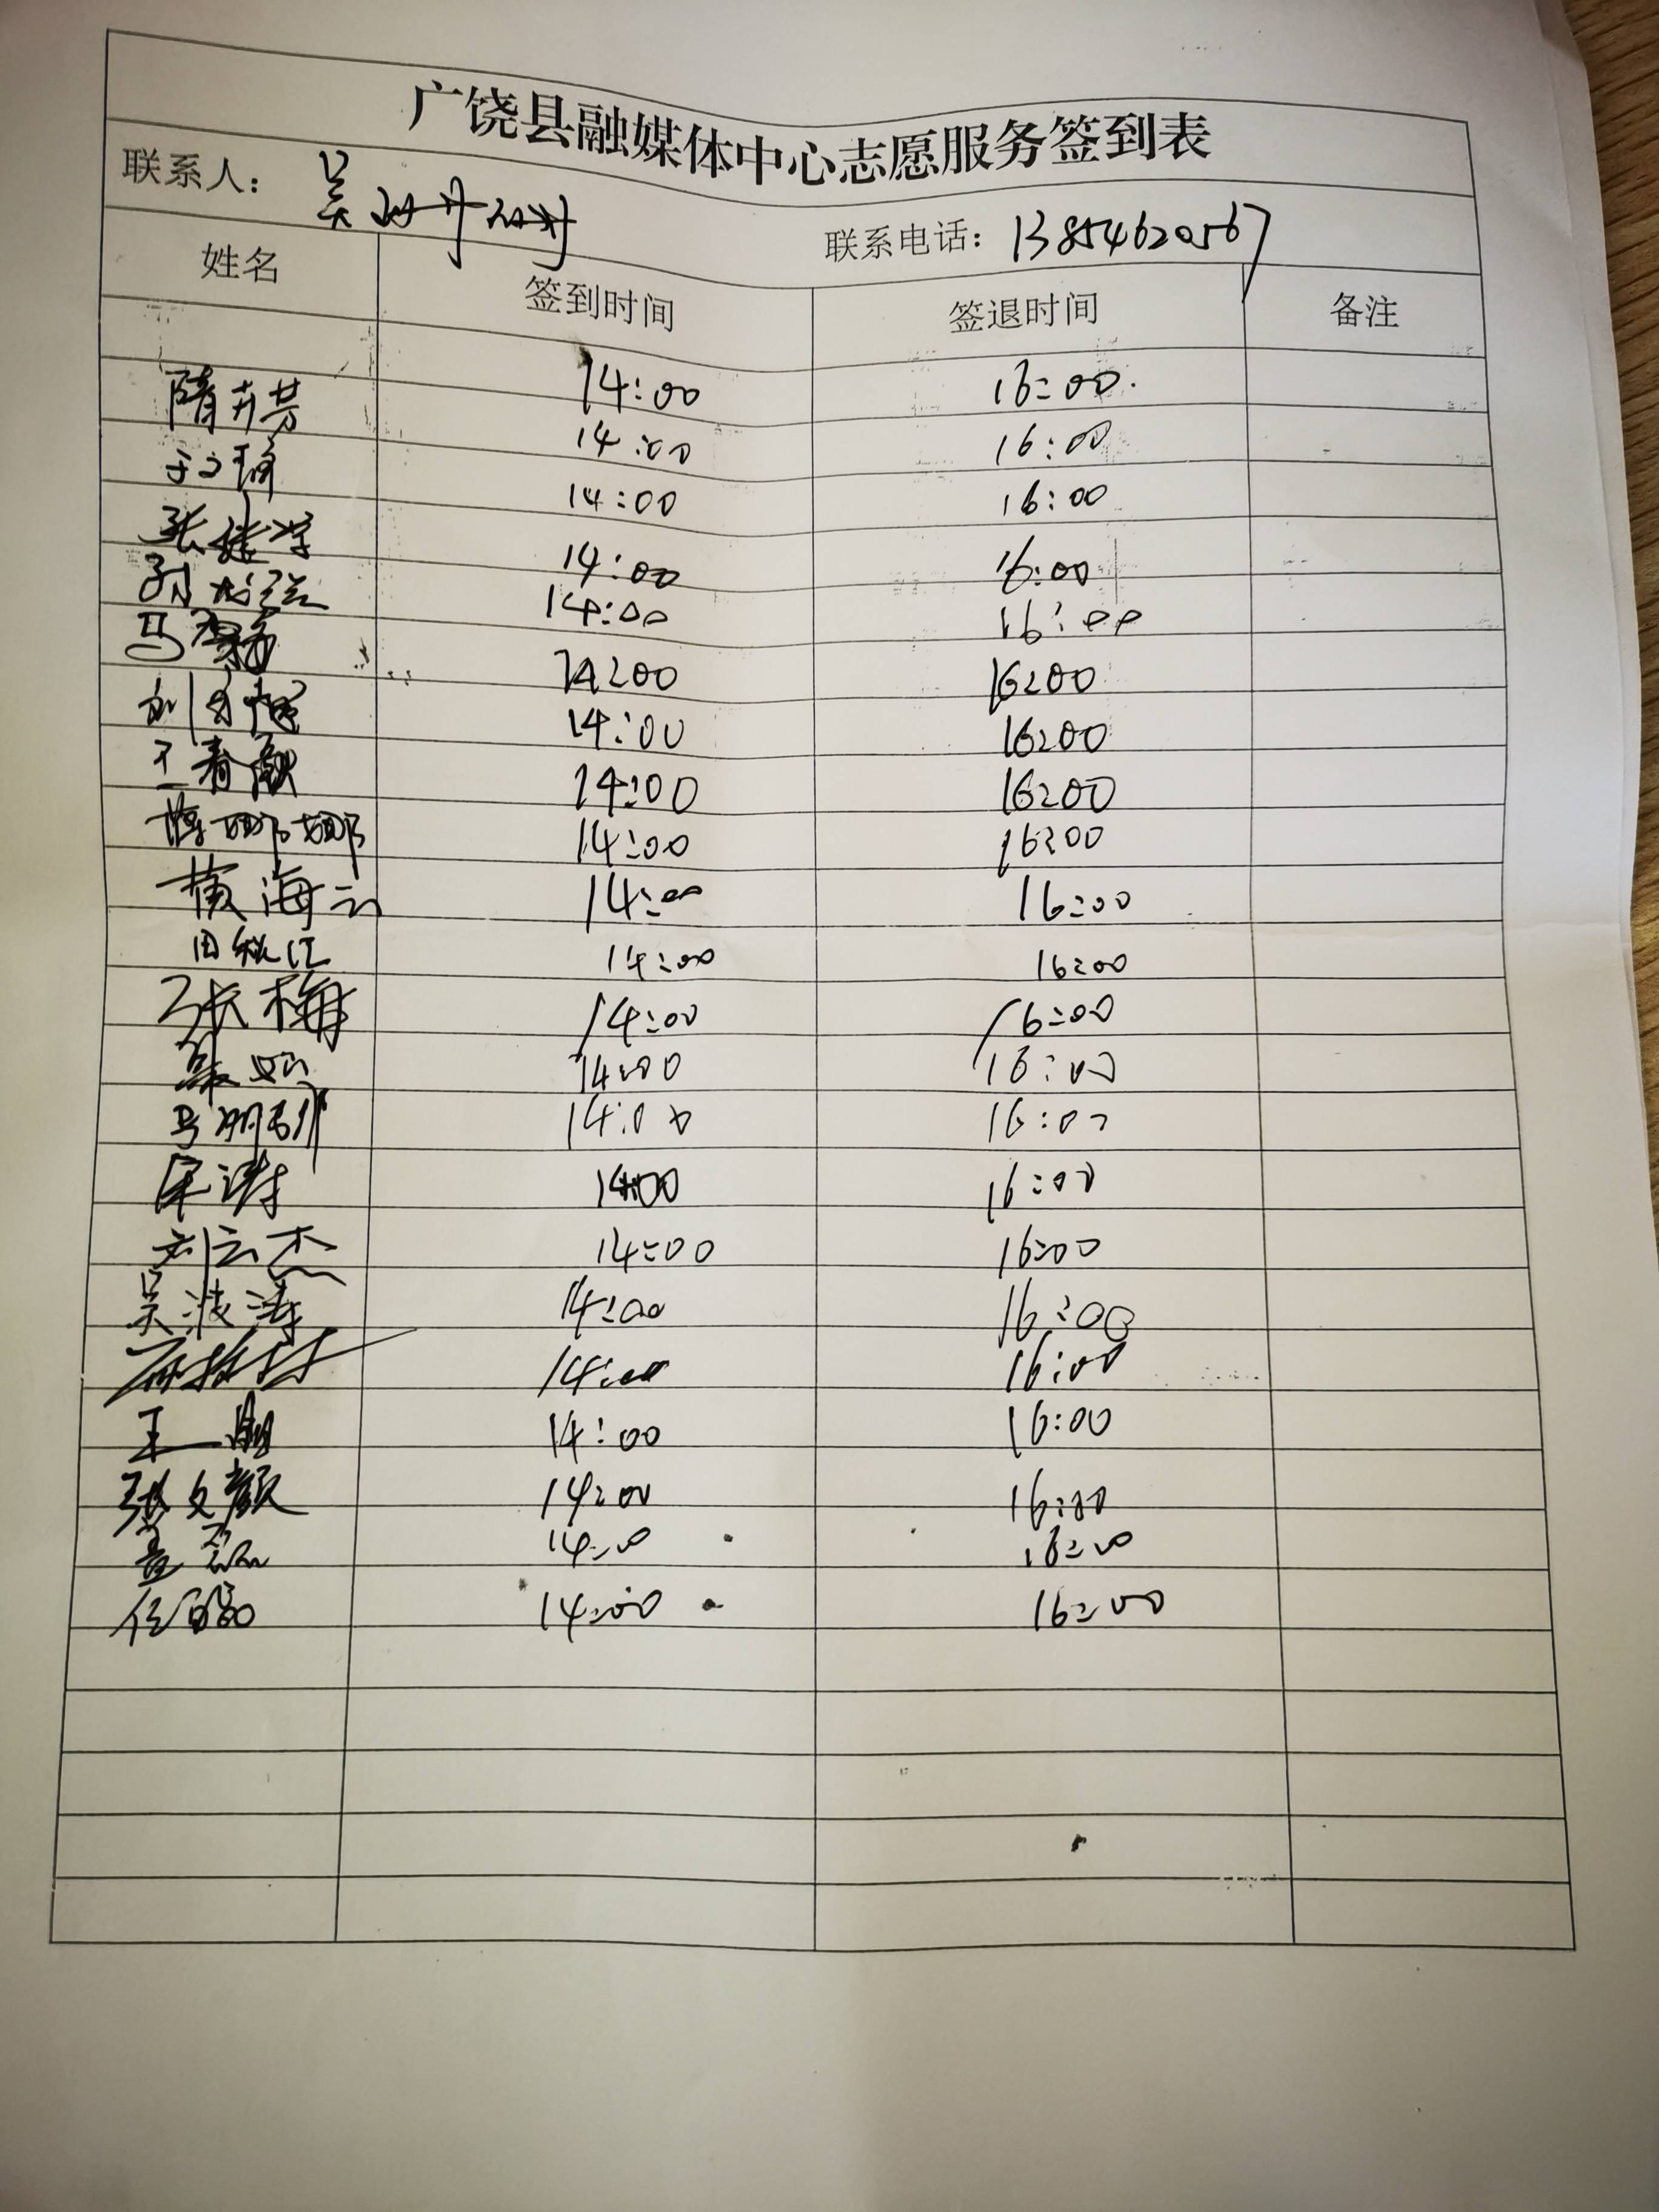 广饶县融媒体中心志愿服务签到表
联系人： 吴丹丹 联系电话：13854620567
姓名 签到时间 签退时间 备注
隋卉芳 14:00 16:00
于文 14:00 16:00
张建学 14:00 16:00
14:00 16:00
马 14:00 16:00
刘 14:00 16:00
王春 14:00 16:00
娜娜 14:00 16:00
黄海云 14:00 16:00
田秋江 14:00 16:00
张梅 14:00 16:00
14:00 16:00
马明 14:00 16:00
宋涛 14:00 16:00
刘云杰 14:00 16:00
吴波涛 14:00 16:00
14:00 16:00
王一 14:00 16:00
张文颜 14:00 16:00
14:00 16:00
任 14:00 16:00